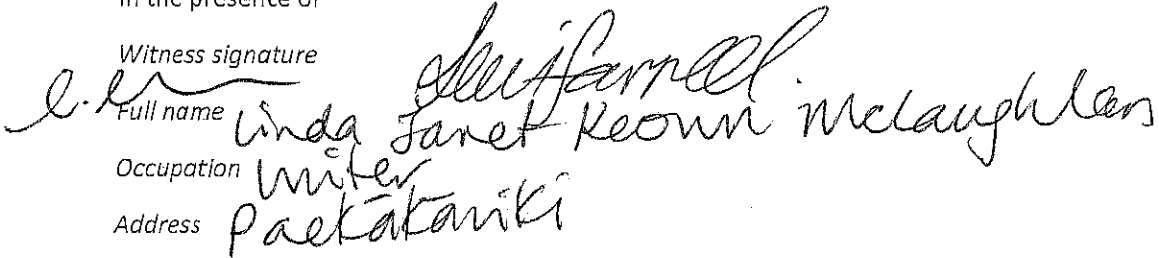 In the presence of
Witness signature
Full name Linda Janet Keown McLaughlan
Occupation Writer
Address Paekākāriki